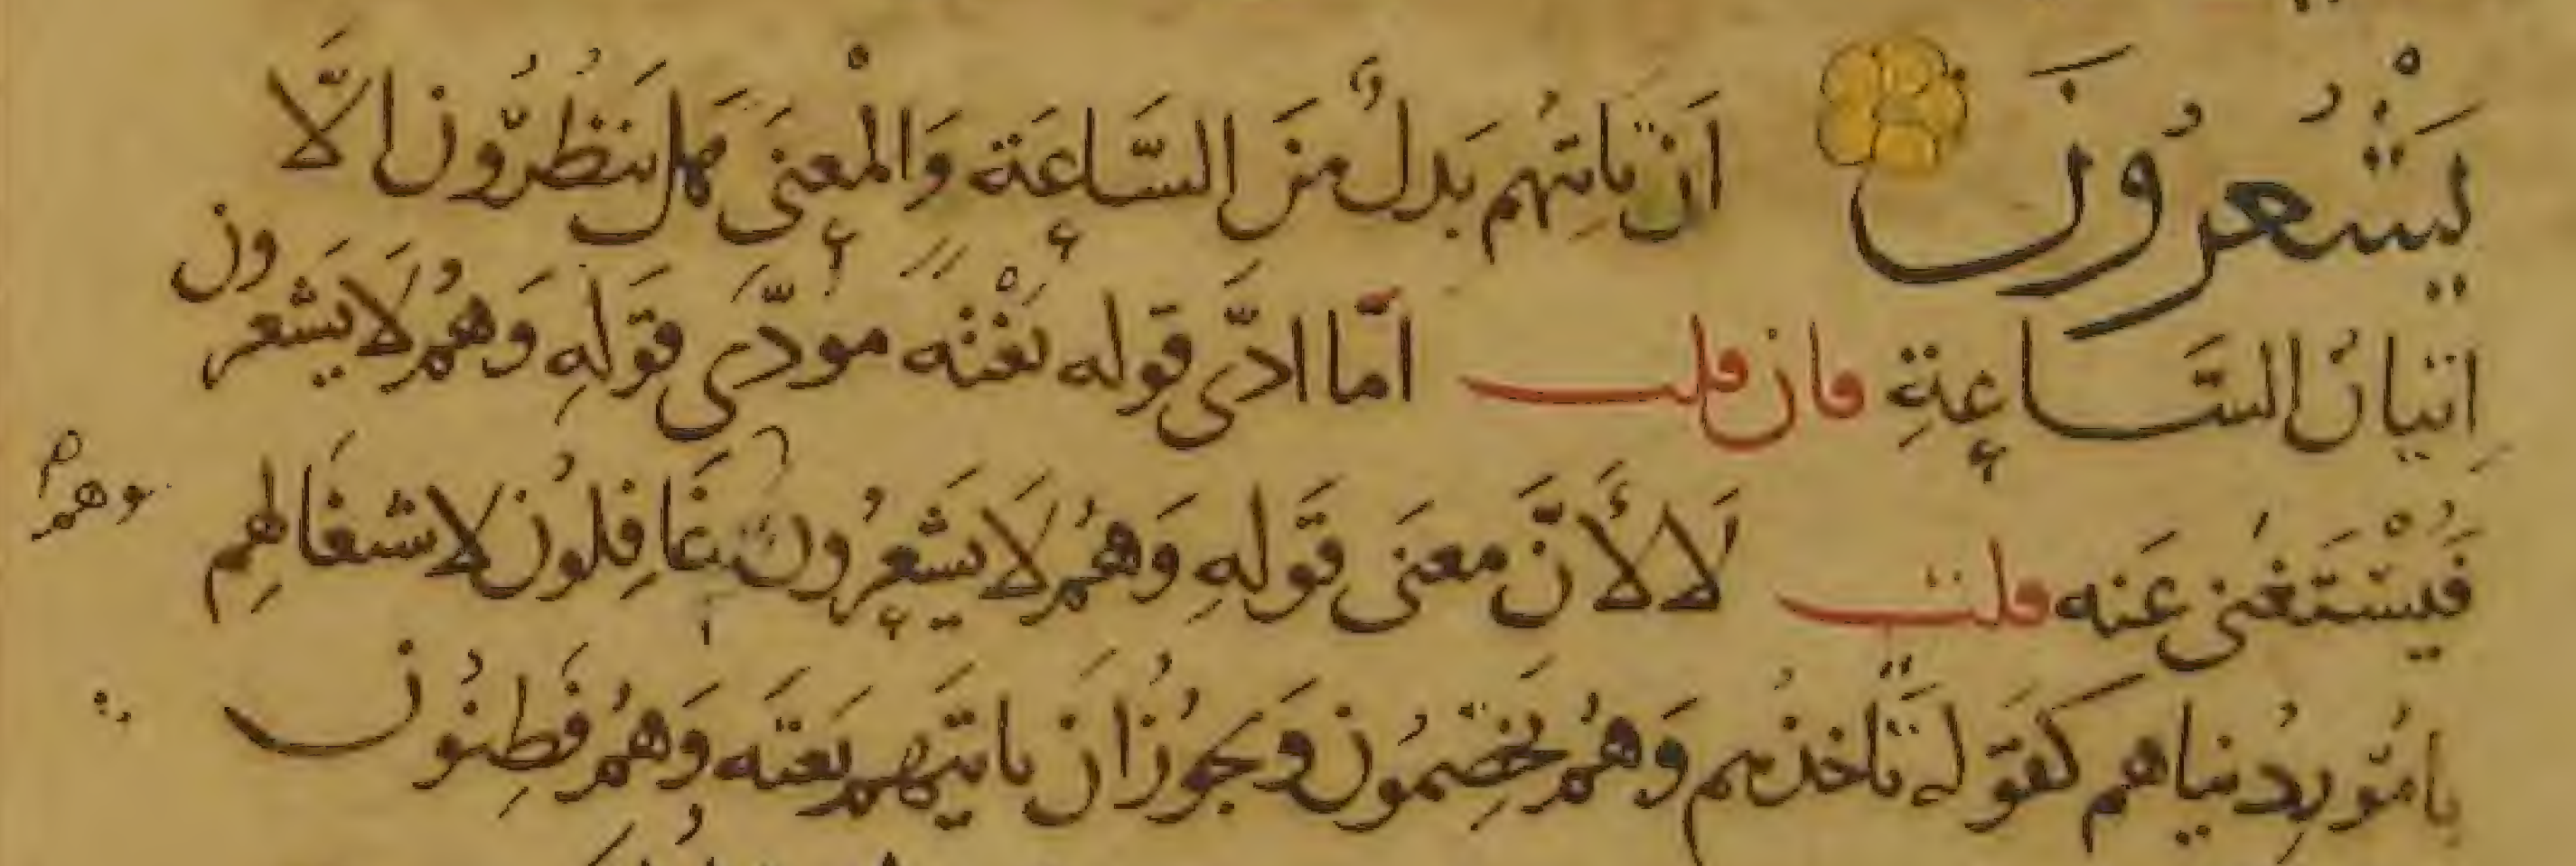 يَشْعُرُونَ اَن تاتِيَهُم بَدلٌ مِنَ السَّاعَة وَالْمعنَى هَل يَنظُرُّون اِلَّا
اِتيانُ السَّاعةِ فان قلت امّا ادَّى قوله بَغْتَه مودَّى قَولِهِ وَهُم لَا يَشعرون
فَيُسْتَغنى عَنه قلت لَا لأَنَّ معنَى قَولِهِ وَهُم لَا يَشعُرون غَافِلُون لاشغَالِهِم
بامُورِ دُنياهم كقَوله تَاخذُهم وَهُم يَخِصّمُون وَيجُوزُ اَن تاتيَهم بَغتَه وَهُم فَطِنُون
وهم